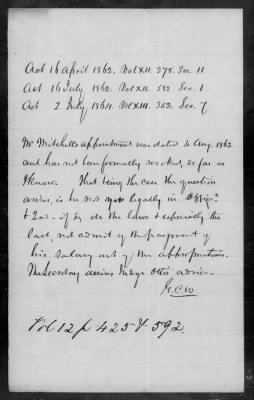 Act 16 April 1862. Vol XII. 378. Sec. 11
Act 16 July 1862. Vol XII. 582 Sec. 1
Act 2 July 1864. Vol XIII. 352. Sec. 7
Mr Mitchell's appointment was dated 4 Aug. 1862
and has not been formally revoked, so far as
I know. That being the case the question
arises, is he not legally in Office?
& 2nd - if so, do the laws & especially the
last, not admit of the payment of
his salary out of the appropriations.
The Secretary desires Judge Otto's advice -
G.C.W.
Vol 12 p 425 & 592.